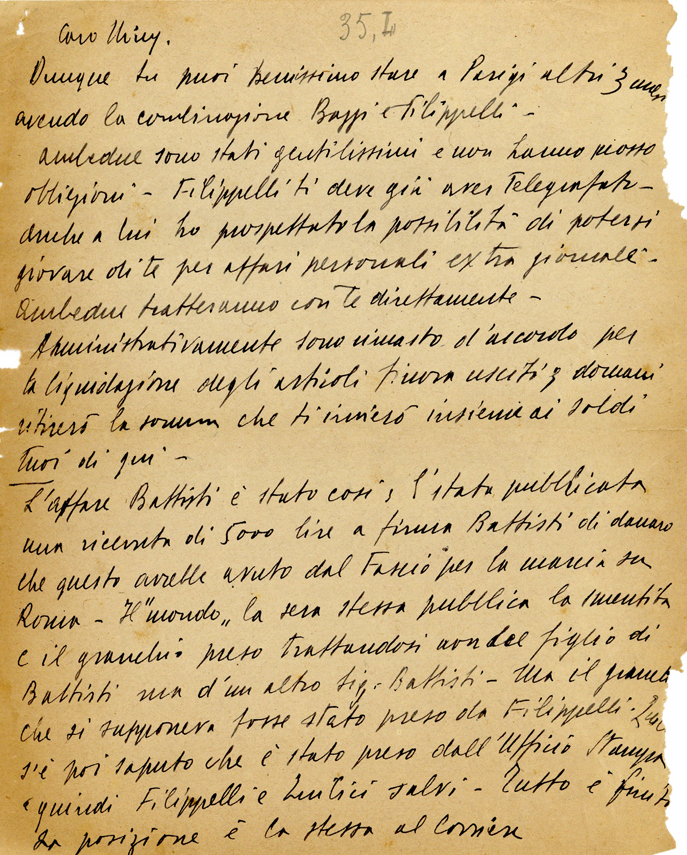 35, I
Caro Uiny.
Dunque tu puoi benissimo stare a Parigi altri 3 mesi
avendo la combinazione Bazzi e Filippelli -
Ambedue sono stati gentilissimi e non hanno mosso
obbiezioni - Filippelli ti deve già aver Telegrafato -
Anche a lui ho prospettato la possibilità di potersi
giovare di te per affari personali extra giornale -
Ambedue tratteranno con te direttamente -
Amministrativamente sono rimasto d'accordo per
la liquidazione degli articoli finora usciti e domani
ritirerò la somma che ti invierò insieme ai soldi
tuoi di qui -
L'affare Battisti è stato così; È stata pubblicata
una ricevuta di 5000 lire a firma Battisti di danaro
che questo avrebbe avuto dal Fascio per la marcia su
Roma - Il "mondo" la sera stessa pubblica la smentita
e il granchio preso trattandosi non del figlio di
Battisti ma d'un altro Sig. Battisti - Ma il granchio
che si supponeva fosse stato preso da Filippelli.
s'è poi saputo che è stato preso dall'Ufficio Stampa
e quindi Filippelli e salvi - Tutto è finito
La posizione è la stessa al Corriere